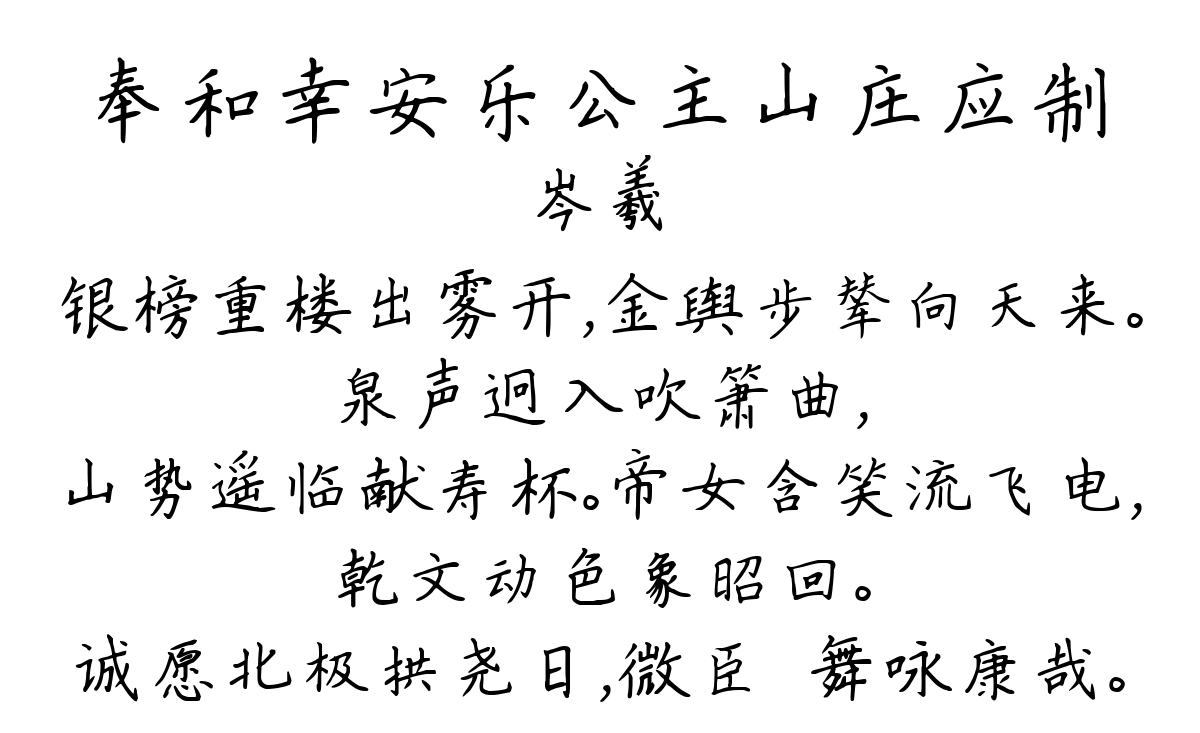 奉和幸安乐公主山庄应制
岑羲
银榜重楼出雾开,金舆步辇向天来。
泉声迥入吹箫曲,
山势遥临献寿杯。帝女含笑流飞电,
乾文动色象昭回。
诚愿北极拱尧日,微臣 舞咏康哉。